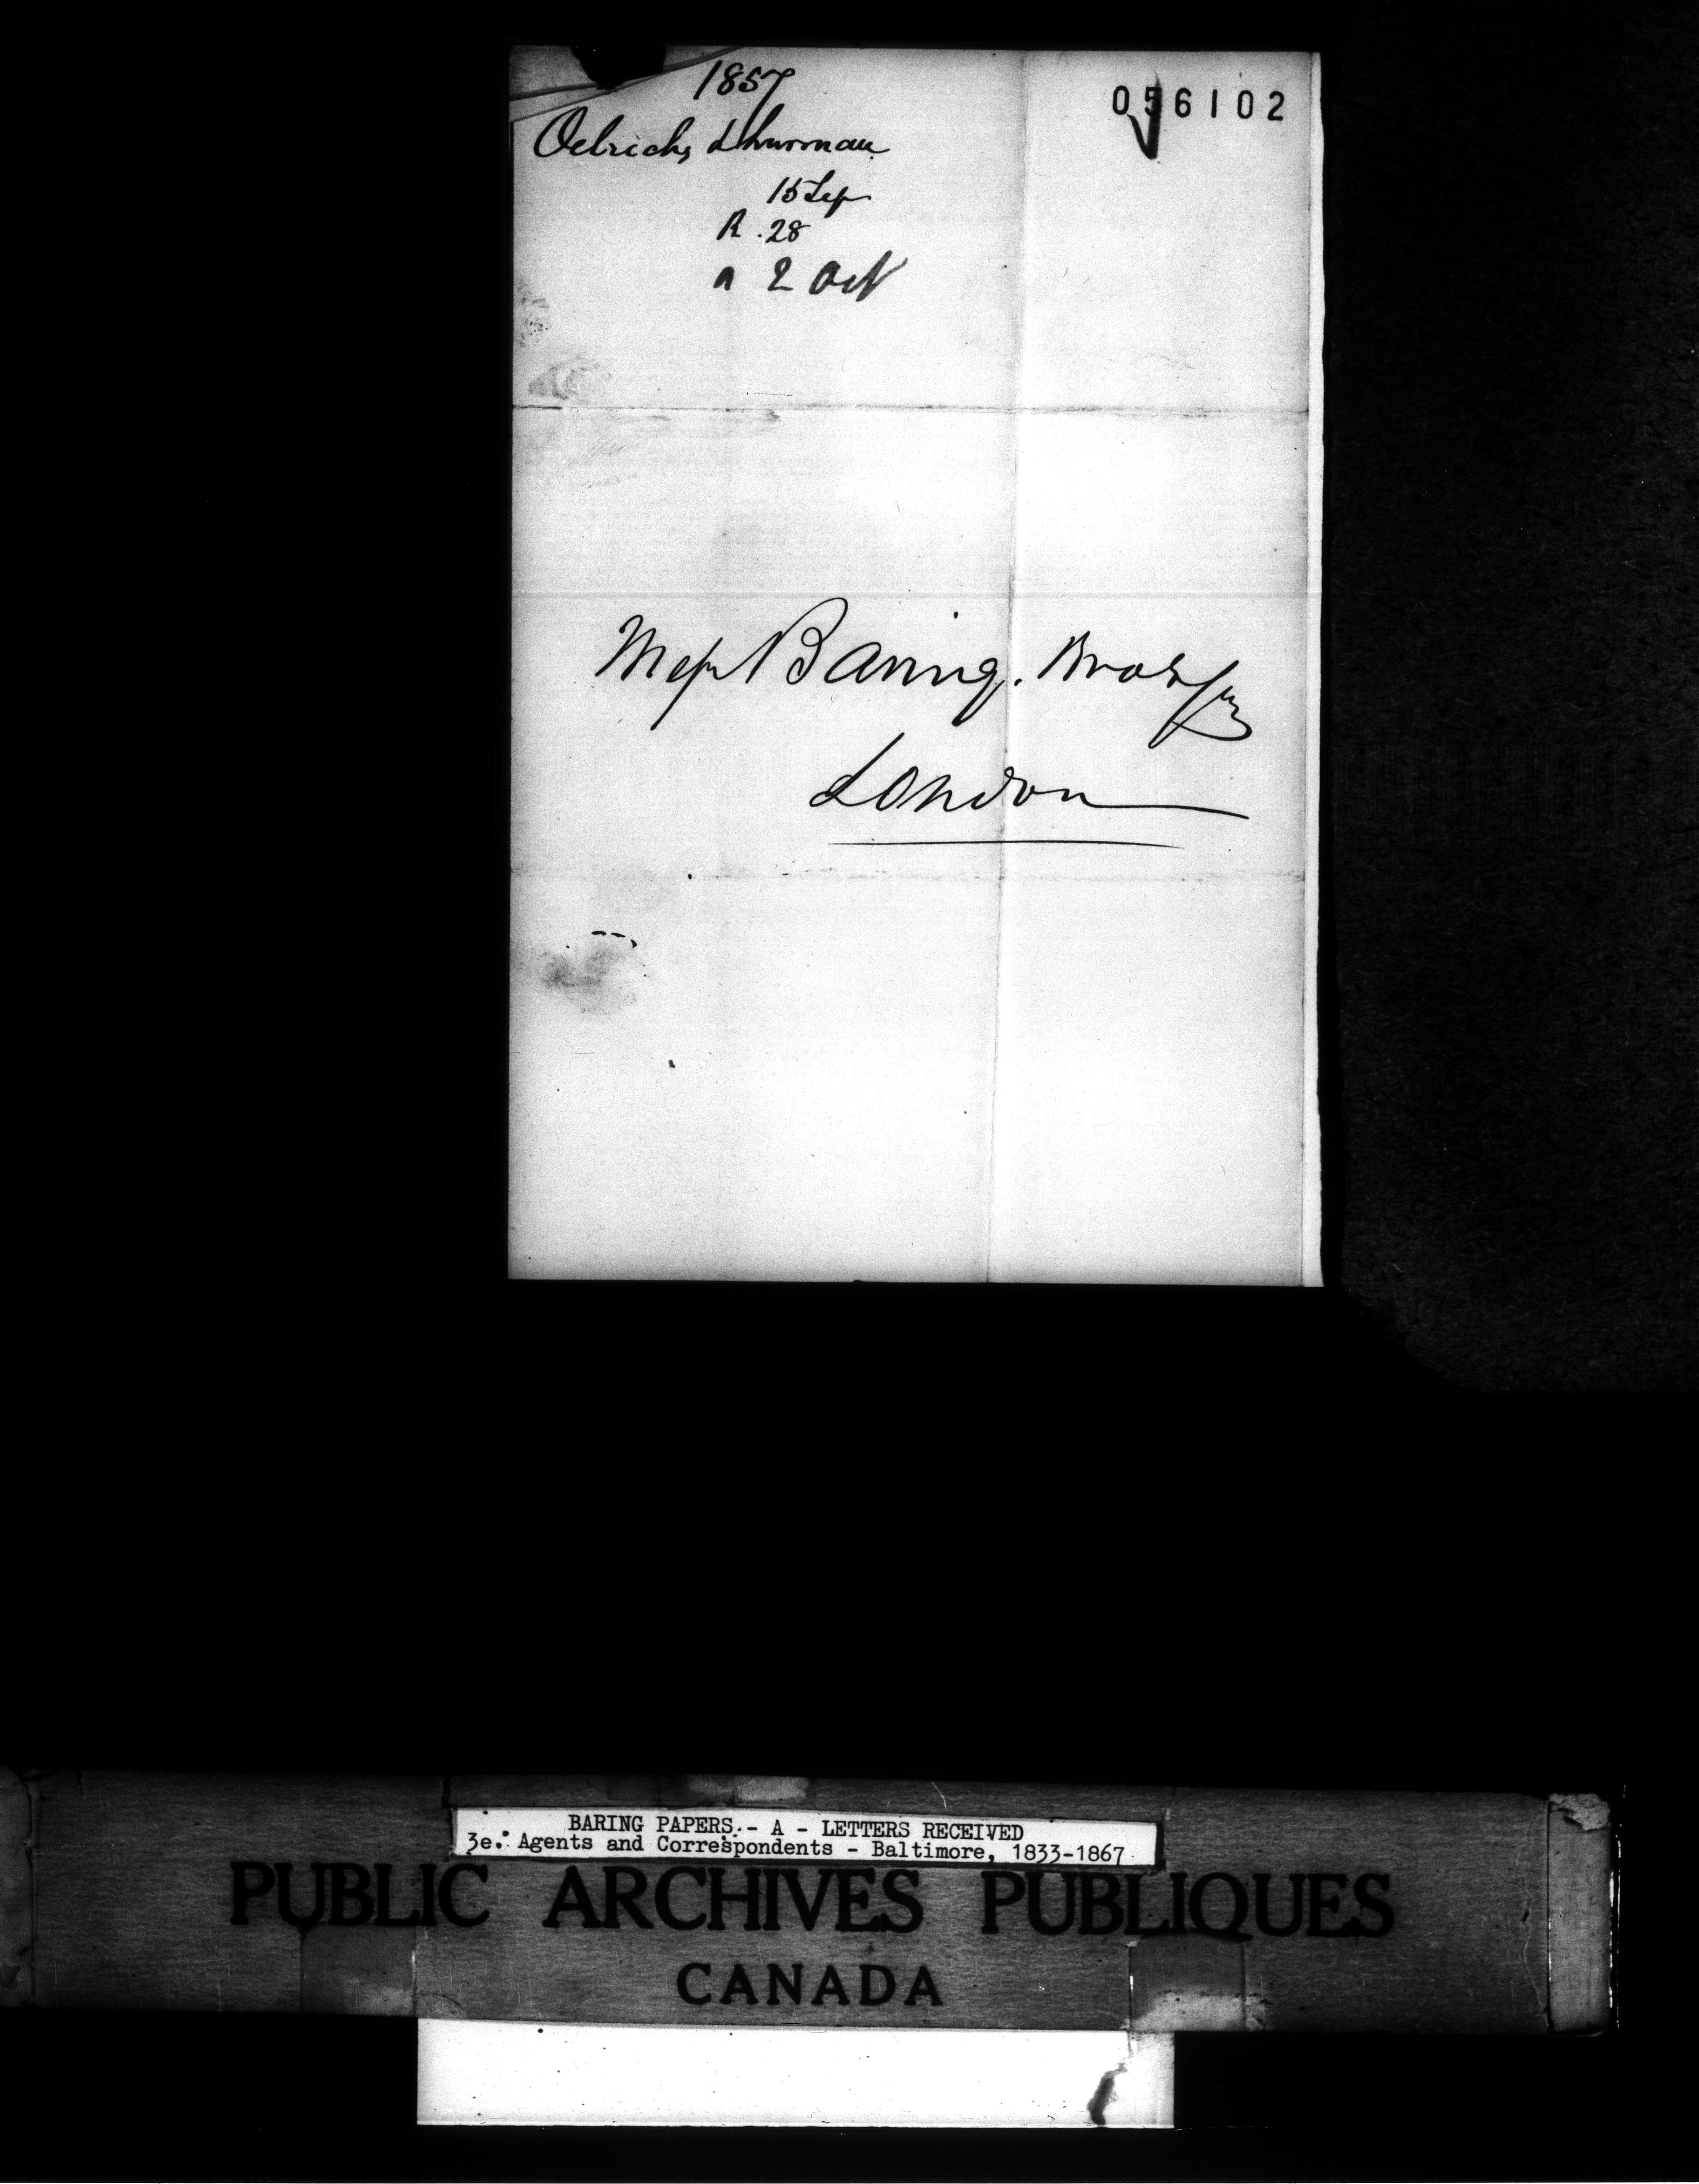 1857
056102
Oelrichs & Lurman
15 Sep
R. 28
a 2 Oct
Messrs Baring. Bros &
London
BARING PAPERS.- A - LETTERS RECEIVED
3e. Agents and Correspondents - Baltimore, 1833-1867
PUBLIC ARCHIVES PUBLIQUES
CANADA